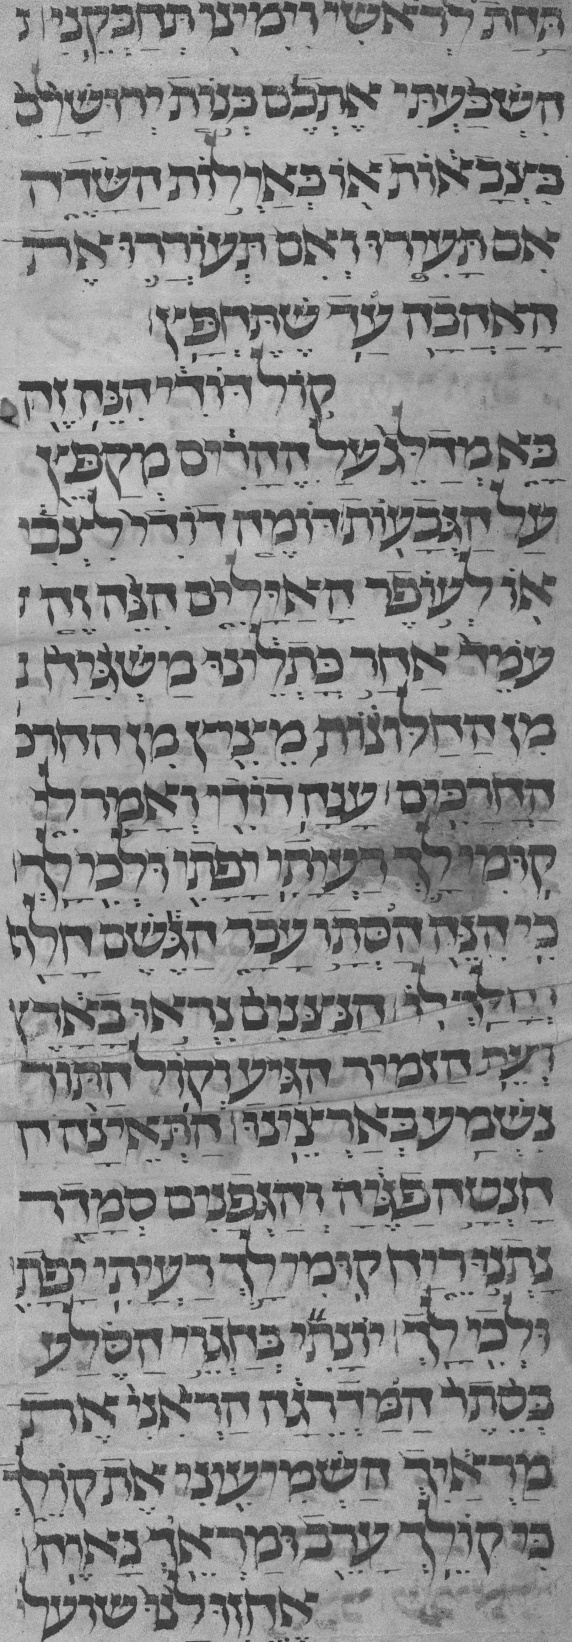 תחת לראשי וימינו תחבקני
השבעתי אתכם בנות ירושלם
בצבאות או באילות השדה
אם תעירו ואם תעוררו את
האהבה עד שתחפץ
קול דודי הנה זה
בא מדלג על ההרים מקפץ
על הגבעות דומה דודי לצבי
או לעופר האילים הנה זה
עמד אחר כתלינו משגיח
מן החלונות מציץ מן החרכ
החרכים ענה דודי ואמר לי
קומי לך רעיתי יפתי ולכי לך
כי הנה הסתו עבר הגשם חלף
והלך לו הנצנים נראו בארץ
ועת הזמיר הגיע וקול התור
נשמע בארצינו התאינה ח
חנטה פגיה והגפנים סמדר
נתנו ריח קומי לך רעיתי יפתי
ולכי לך יונתי בחגוי הסלע
בסתר המדרגה הראני את
מראיך השמיעיני את קולך
כי קולך ערב ומראך נאוה
אחזו לנו שועל